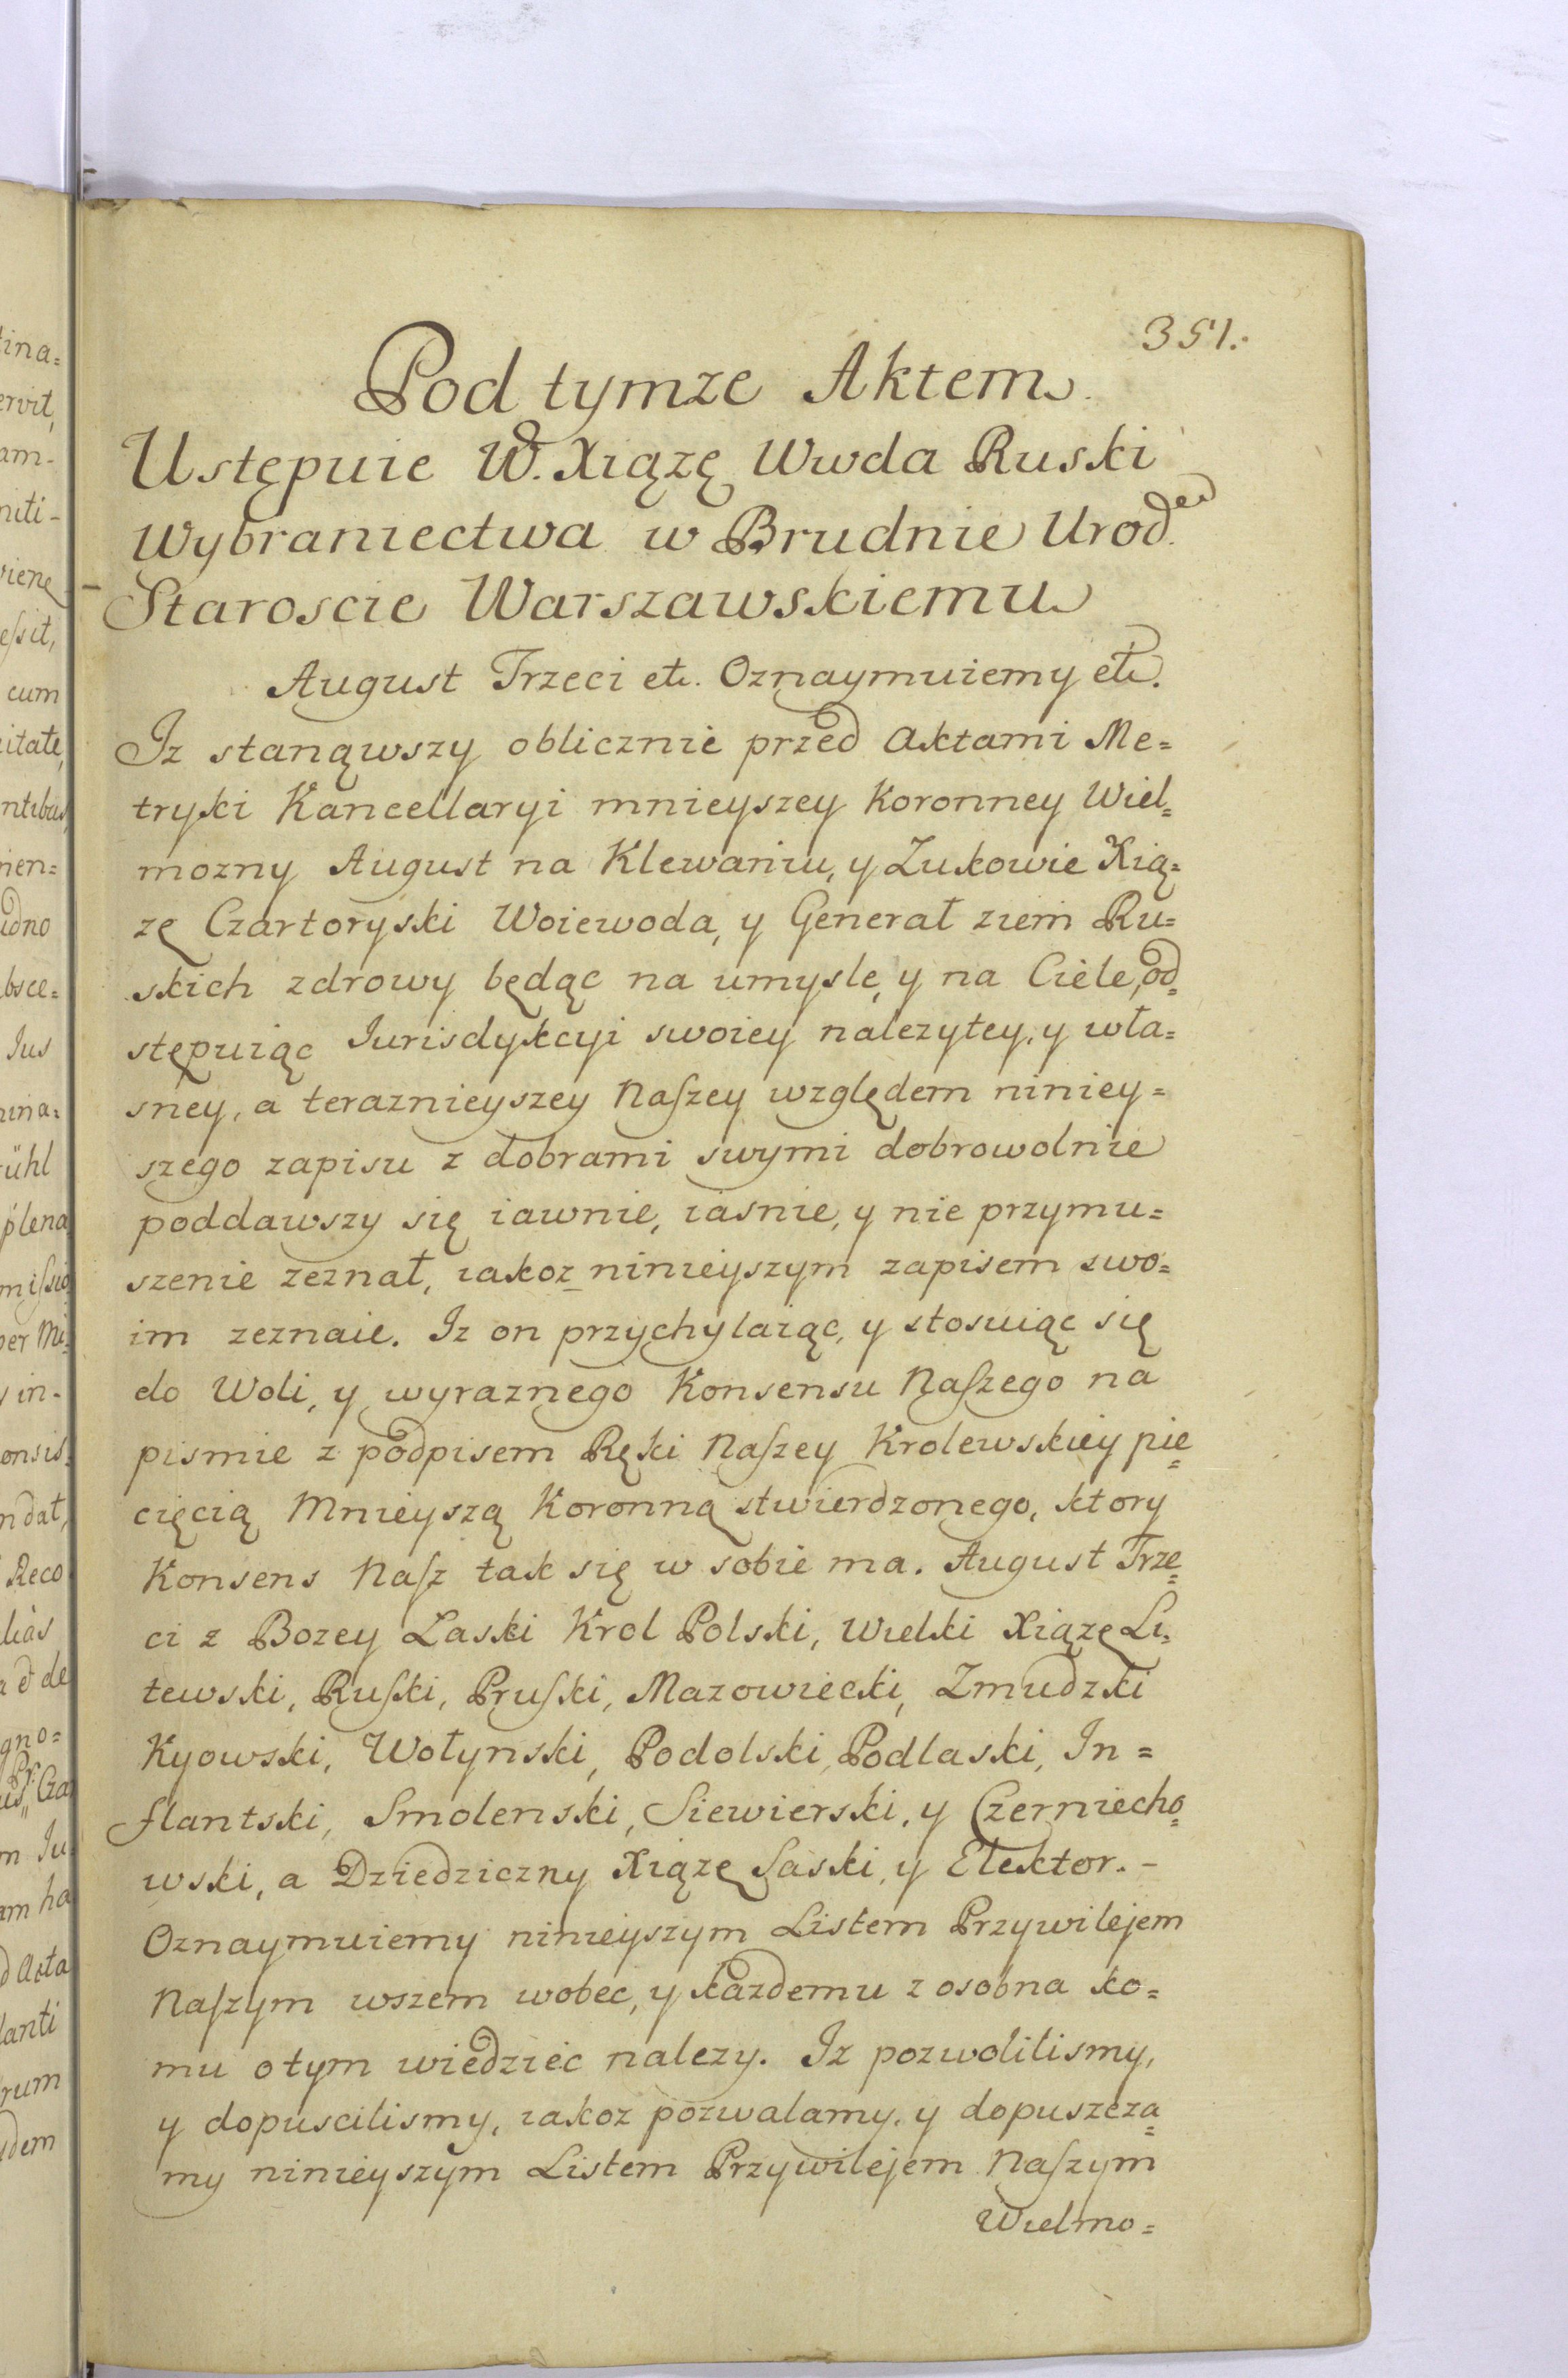 351.
Pod tymze Aktem.
Ustępuie W. Xiązę Wwda Ruski
Wybraniectwa w Brudnie Urod.
Staroscie Warszawskiemu
August Trzeci etc. Oznaymuiemy etc.
Iz stanąwszy oblicznie przed Aktami Me=
tryki Kancellaryi mnieyszey Koronney Wiel=
mozny August na Klewaniu, y Zukowie Xią=
zę Czartoryski Woiewoda, y Generał ziem Ru=
skich zdrowy będąc na umysle, y na Ciele, od=
stępuiąc Iurisdykcyi swoiey nalezytey, y wła=
sney, a teraznieyszey Naszey względem niniey=
szego zapisu z dobrami swymi dobrowolnie
poddawszy się iawnie, iasnie, y nie przymu=
szenie zeznał, iakoz ninieyszym zapisem swo=
im zeznaie. Iz on przychylaiąc, y stosuiąc się
do Woli, y wyraznego Konsensu Naszego na
pismie z podpisem Ręki Naszey Krolewskiey pie=
cięcią Mnieyszą Koronną stwierdzonego, ktory
Konsens Nasz tak się w sobie ma. August Trze=
ci z Bozey Laski Krol Polski, Wielki Xiązę Li=
tewski, Ruski, Pruski, Mazowiecki, Zmudzki
Kyowski, Wołynski, Podolski, Podlaski, In=
flantski, Smolenski, Siewierski, y Czerniecho=
wski, a Dziedziczny Xiązę Saski, y Elektor. -
Oznaymuiemy ninieyszym Listem Przywilejem
Naszym wszem wobec, y kazdemu z osobna ko=
mu o tym wiedziec nalezy. Iz pozwolilismy,
y dopuscilismy, iakoz pozwalamy, y dopuszcza=
my ninieyszym Listem Przywilejem Naszym
Wielmo=